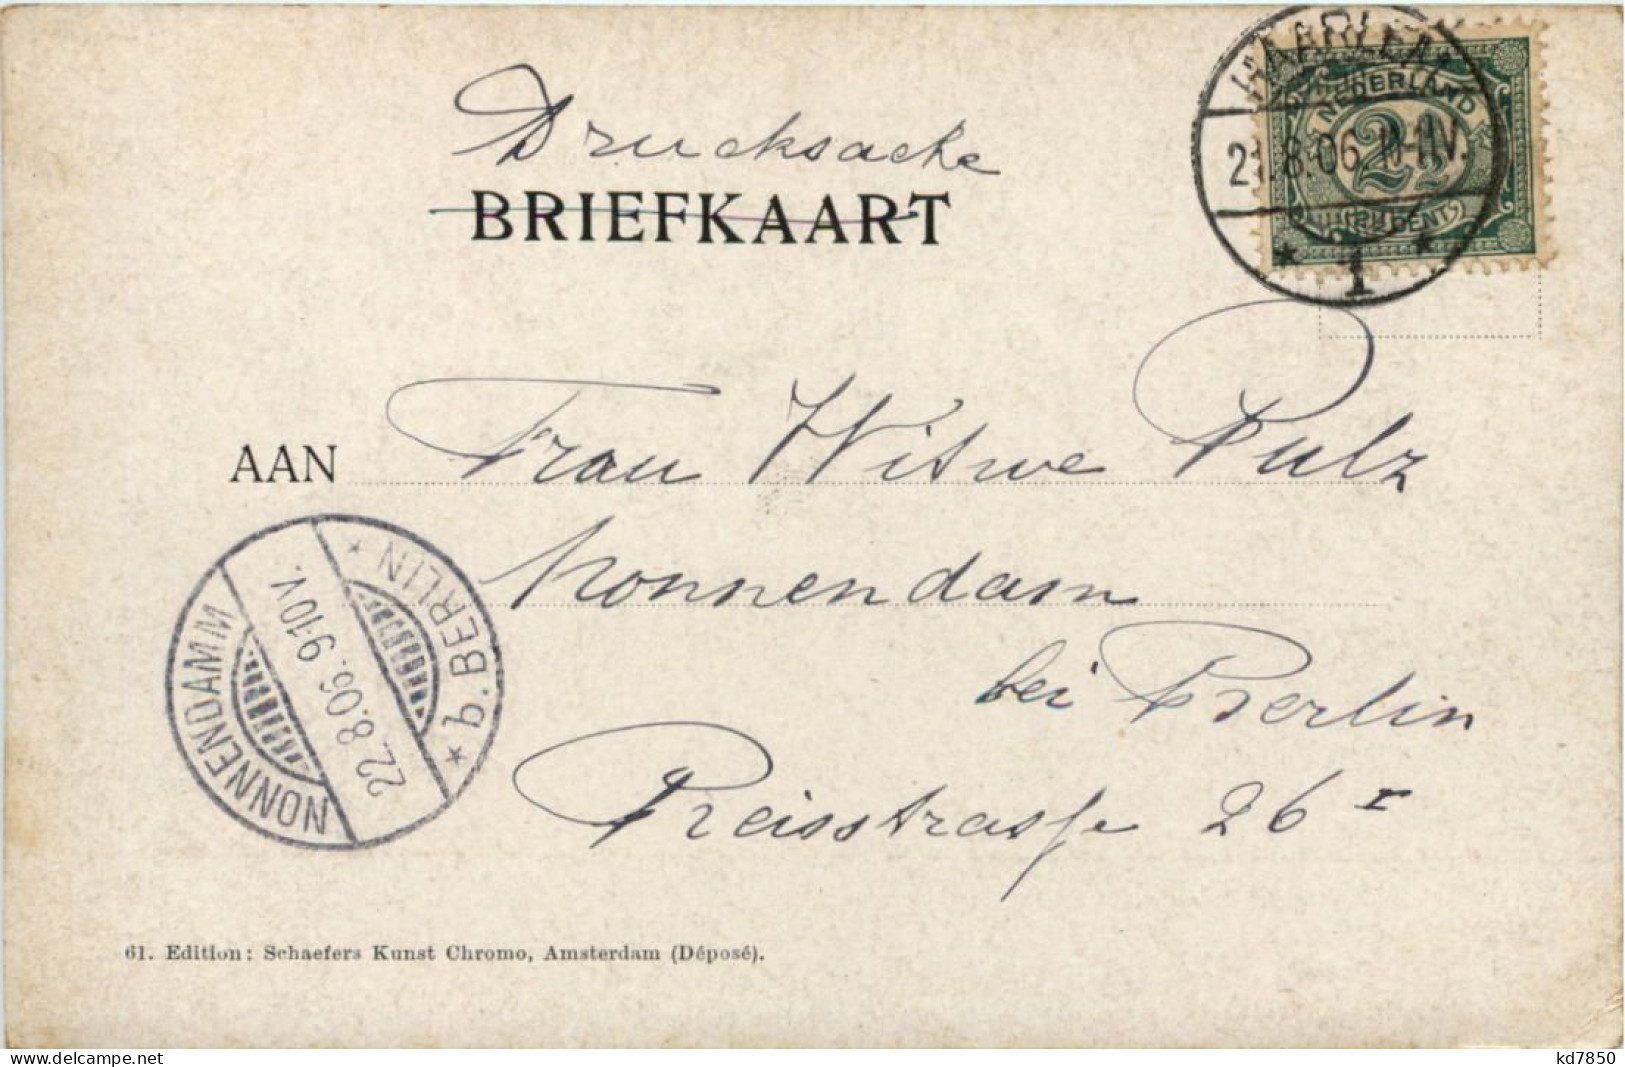 Drucksache
BRIEFKAART
HAARLEM
21.8.06 10-11V.
1
NEDERLAND
2½
CENT
AAN Frau Witwe Pulz
Nonnendam
bei Berlin
Reisstrasse 26 I
NONNENDAMM
22.8.06. 9-10V.
b. BERLIN
61. Edition: Schaefers Kunst Chromo, Amsterdam (Déposé).
delcampe.net
kd7850